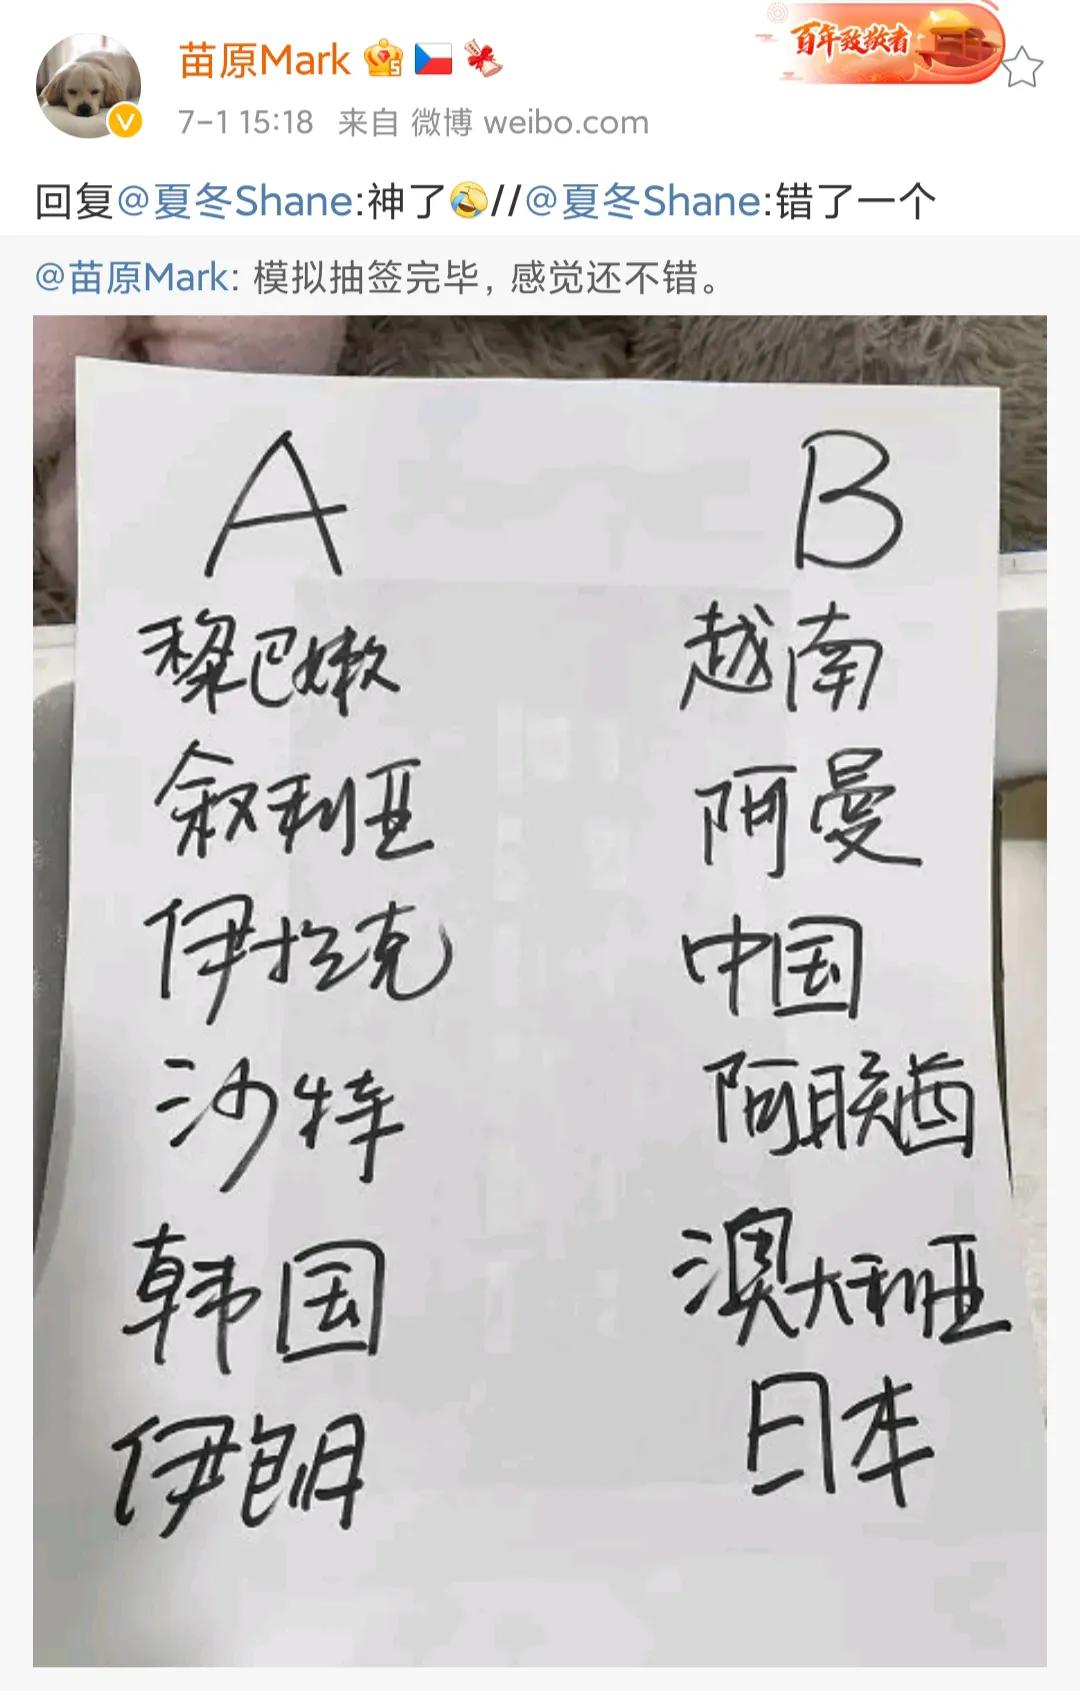 苗原Mark
百年致敬者
7-1 15:18 来自 微博 weibo.com
回复@夏冬Shane:神了🤣//@夏冬Shane:错了一个
@苗原Mark: 模拟抽签完毕，感觉还不错。
A B
黎巴嫩 越南
叙利亚 阿曼
伊拉克 中国
沙特 阿联酋
韩国 澳大利亚
伊朗 日本